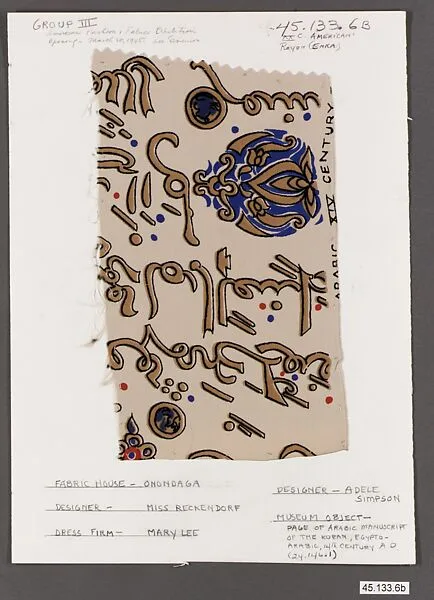 GROUP III
American Fashions & Fabrics Exhibition
opening - March 20, 1945
45.133.6B
XX C. AMERICAN
RAYON (ENKA)
ARABIC XIV CENTURY
FABRIC HOUSE - ONONDAGA
DESIGNER - MISS RECKENDORF
DRESS FIRM - MARY LEE
DESIGNER - ADELE
SIMPSON
MUSEUM OBJECT -
PAGE OF ARABIC MANUSCRIPT
OF THE KORAN, EGYPTO-
ARABIC, 14TH CENTURY A.D
(24.146.1)
45.133.6b